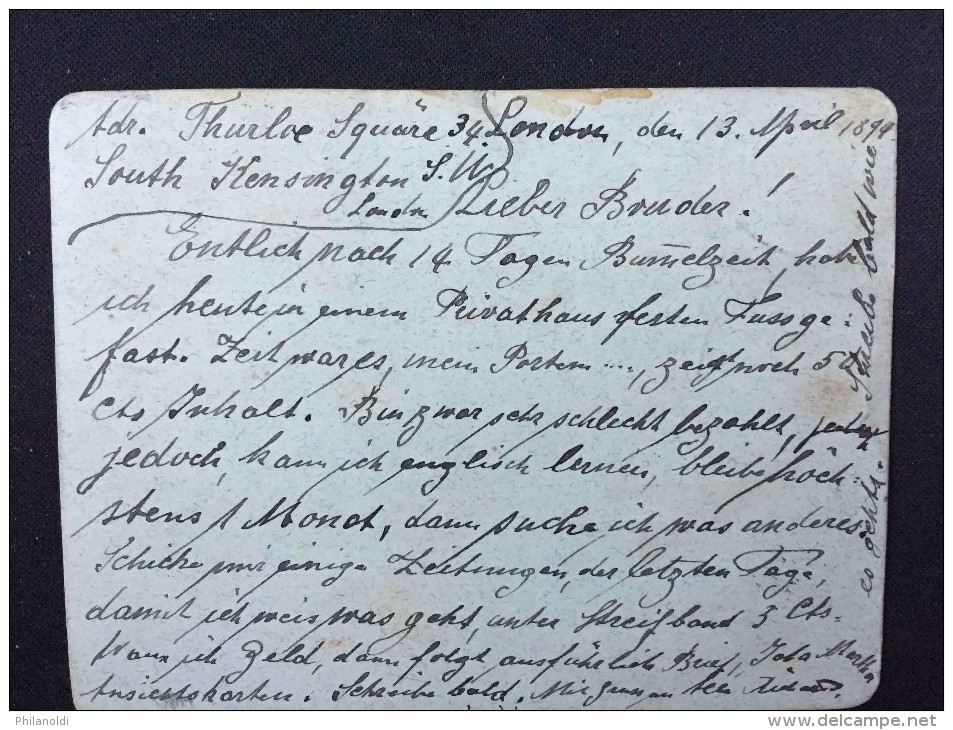 Adr. Thurloe Square 34 London, den 13. April 1894
South Kensington S.W.
London Lieber Bruder!
Entlich nach 14 Tagen Bum̅elzeit, habe
ich heute in einem Privathaus festen Fuss ge-
fast. Zeit war es, mein Portem...., zeigt noch 5
Cts Inhalt. Bin zwar sehr schlecht bezahlt,
jedoch, kann ich englisch lernen, bleibe höch-
stens 1 Monat, dann suche ich was anderes.
Schicke mir einige Zeitungen, der letzten Tage,
damit ich weis was geht, unter Streifband 5 Cts.
Wann ich Geld, dann folgt ausführlich Brief,
Ansichtskarten. Schreibe bald. Mit
Schreibe bald wie
es geht.
Philanoldi
www.delcampe.net